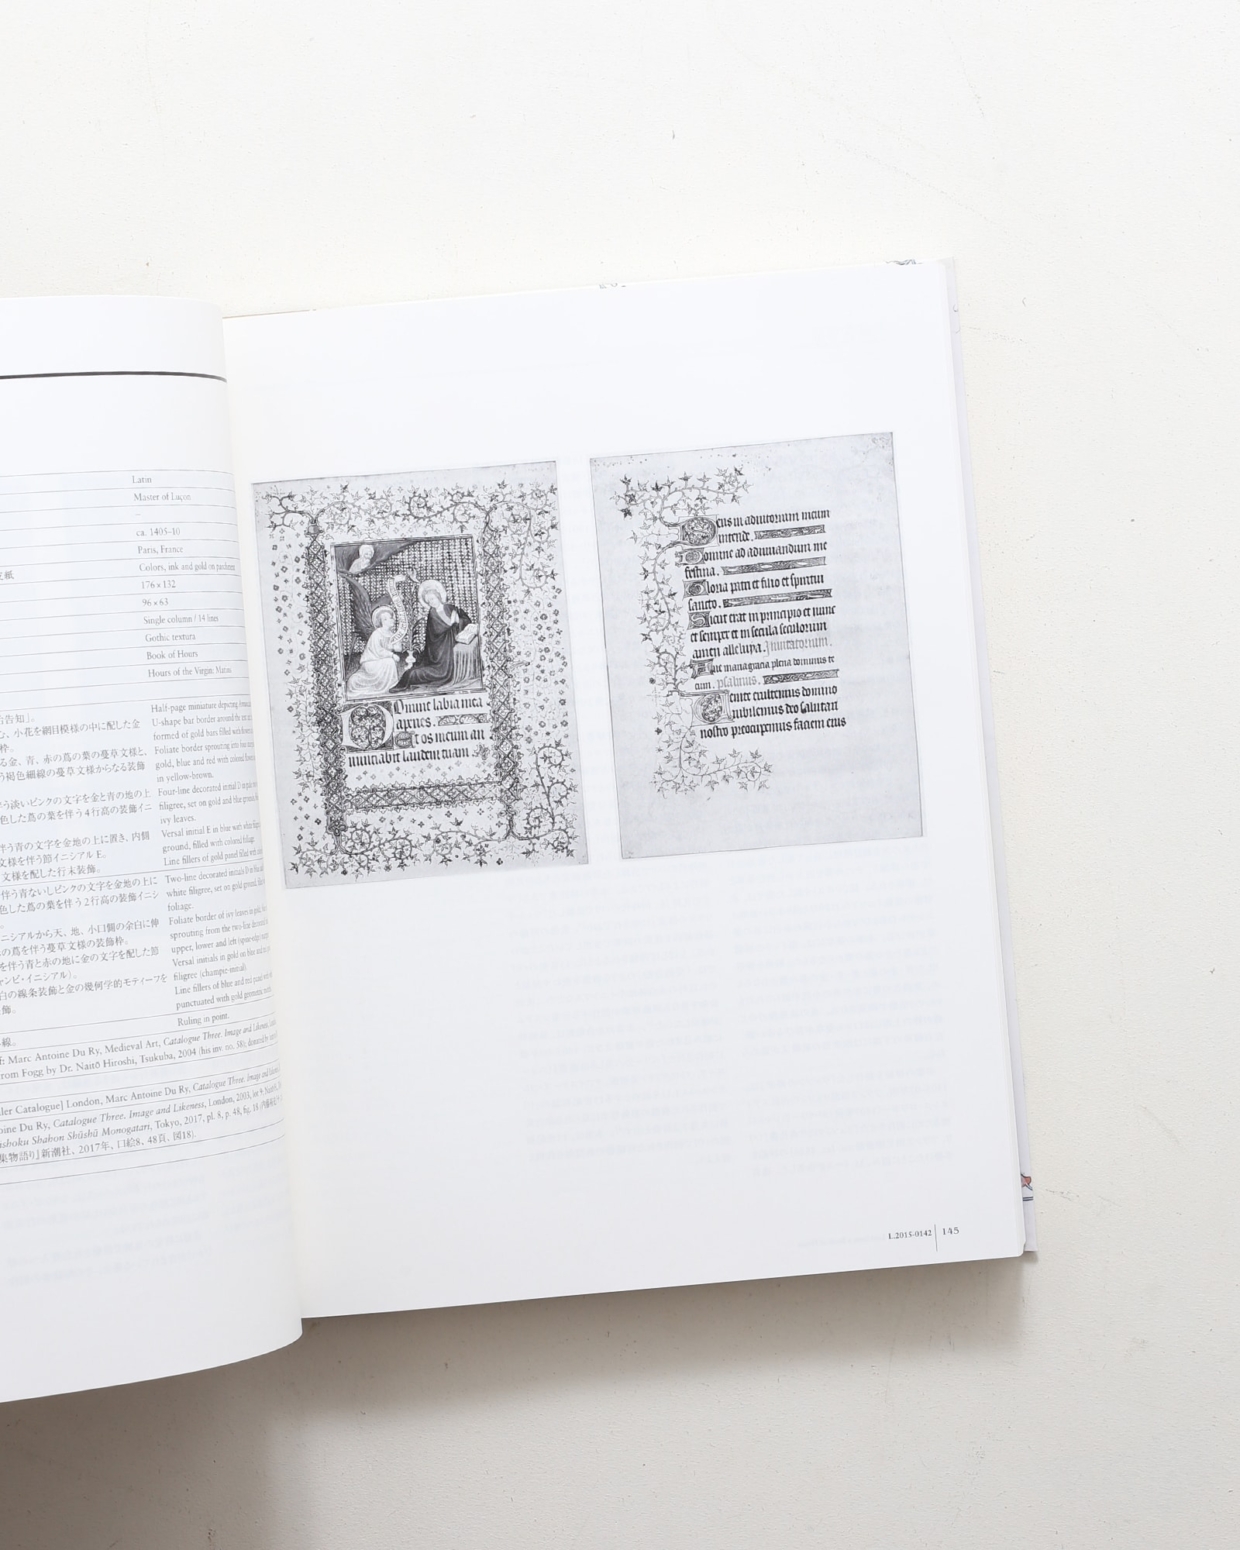 Latin
Master of Luçon
–
ca. 1405-10
Paris, France
Colors, ink and gold on parchment
176 x 132
96 x 63
Single column / 14 lines
Gothic textura
Book of Hours
Hours of the Virgin: Matins
告知」。
、小花を網目模様の中に配した金
枠。
る金、青、赤の蔦の葉の蔓草文様と、
う褐色細線の蔓草文様からなる装飾
伴う淡いピンクの文字を金と青の地の上
色した蔦の葉を伴う4行高の装飾イニ
伴う青の文字を金地の上に置き、内側
文様を伴う節イニシアル E。
文様を配した行末装飾。
伴う青ないしピンクの文字を金地の上に
色した蔦の葉を伴う2行高の装飾イニシ
ニシアルから天、地、小口側の余白に伸
の蔦を伴う蔓草文様の装飾枠。
を伴う青と赤の地に金の文字を配した節
ャンピ・イニシアル)。
白の線条装飾と金の幾何学的モティーフを
飾。
線。
Half-page miniature depicting
U-shape bar border around the
formed of gold bars filled with
Foliate border sprouting
gold, blue and red with
in yellow-brown.
Four-line decorated initial D
filigree, set on gold and blue ground,
ivy leaves.
Versal initial E in blue with white
ground, filled with colored foliage.
Line fillers of gold panel filled with
Two-line decorated initials D
white filigree, set on gold ground,
foliage.
Foliate border of ivy leaves in gold,
sprouting from the two-line
upper, lower and left
Versal initials in gold on blue and
filigree (champie-initial).
Line fillers of blue and red
punctuated with gold geometric
Ruling in point.
Marc Antoine Du Ry, Medieval Art, Catalogue Three. Image and Likeness,
rom Fogg by Dr. Naitō Hiroshi, Tsukuba, 2004 (his inv. no. 58);
ler Catalogue] London, Marc Antoine Du Ry, Catalogue Three. Image and
oine Du Ry, Catalogue Three. Image and Likeness, London, 2003,
ishoku Shahon Shūshū Monogatari, Tokyo, 2017, pl. 8, p. 48, fig. 18
集物語り』新潮社、2017年、口絵8、48頁、図18).
Domine labia mea
aperies.
Et os meum an
nunciabit laudem tuam
Deus in adiutorium meum
intende.
Domine ad adiuvandum me
festina.
Gloria patri et filio et spiritui
sancto.
Sicut erat in principio et nunc
et semper et in secula seculorum
amen alleluya. Invitatorium.
Ave maria gracia plena dominus te
cum. psalmus.
Venite exultemus domino
iubilemus deo salutari
nostro preocupemus faciem eius
L.2015-0142 | 145